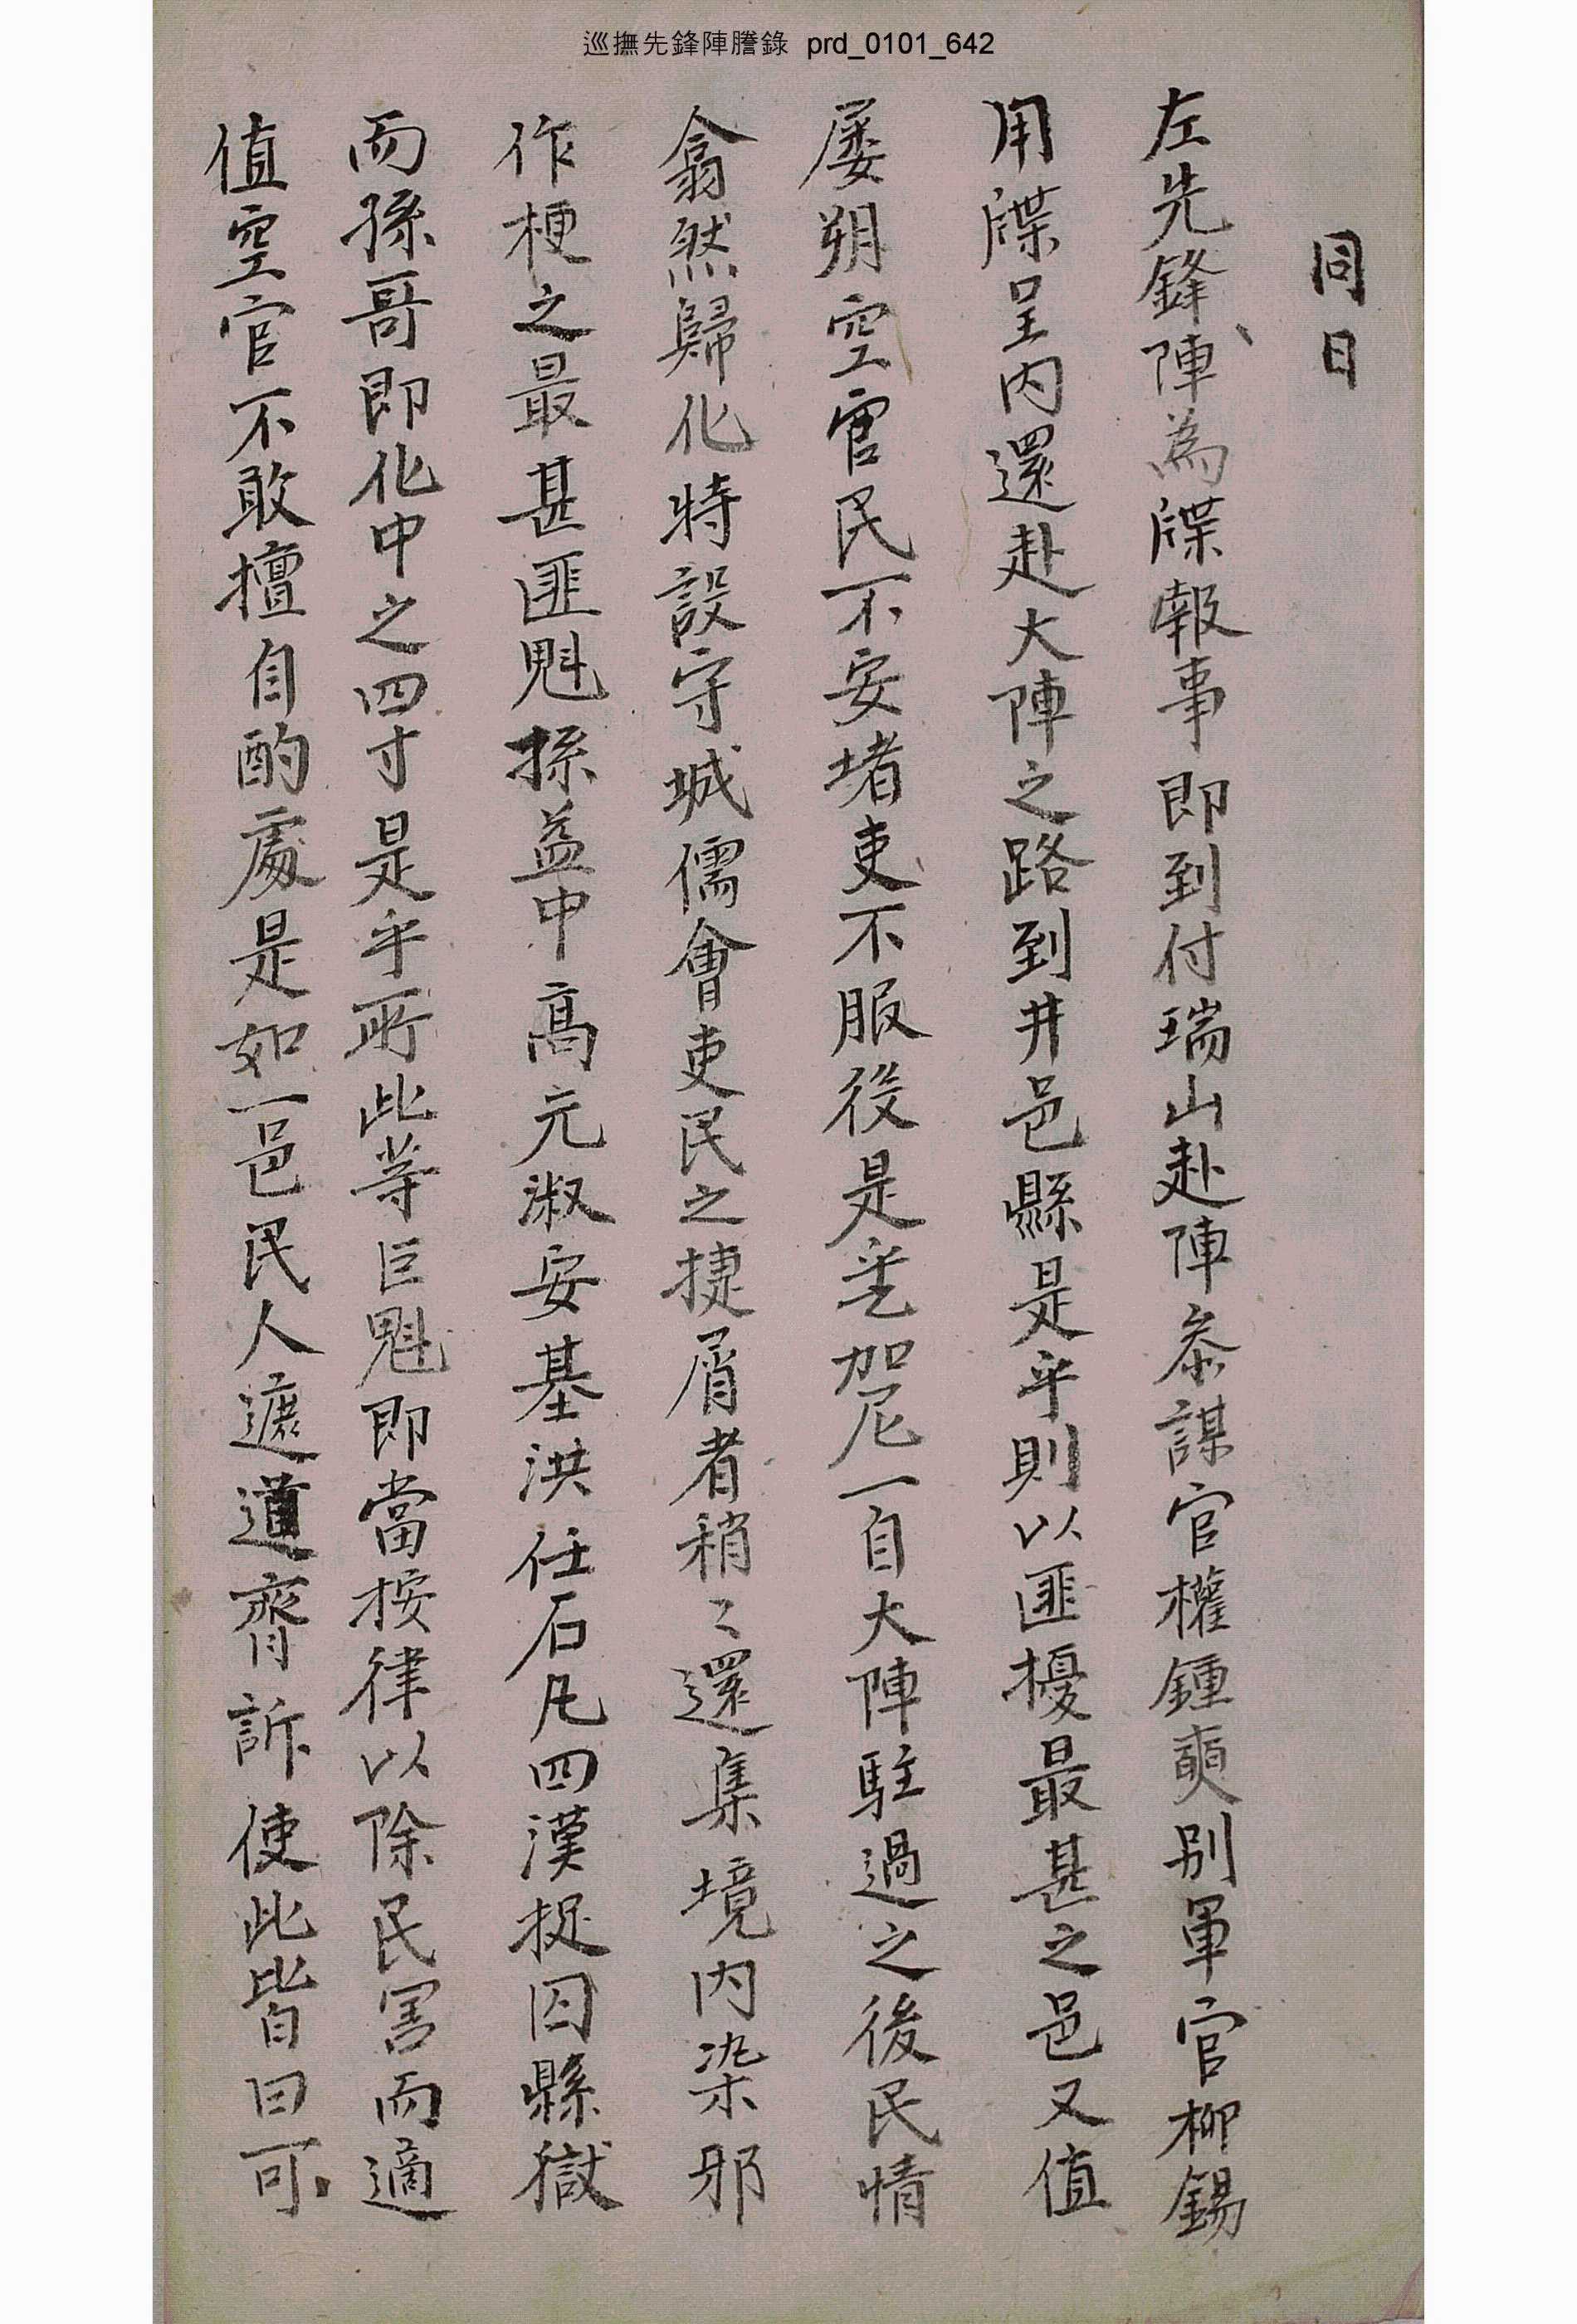 巡撫先鋒陣謄錄 prd_0101_642
同日
左先鋒陣為牒報事即到付瑞山赴陣叅謀官權鍾奭別軍官柳錫
用牒呈內還赴大陣之路到井邑縣是乎則以匪擾最甚之邑又值
屡朔空官民不安堵吏不服役是乎加尼一自大陣駐過之後民情
翕然歸化特設守城儒會吏民之捷屑者稍〻還集境內染邪
作梗之最甚匪魁孫益中高元淑安基洪任石凡四漢捉囚縣獄
而孫哥即化中之四寸是乎所此等巨魁即當按律以除民害而適
值空官不敢擅自酌處是如一邑民人遮道齊訴使此皆曰可